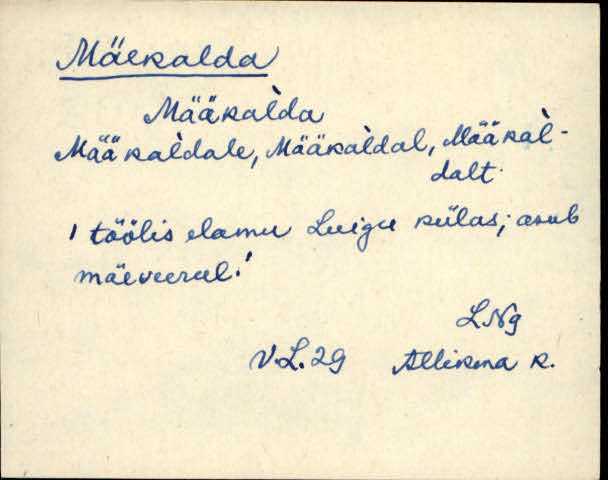 Mäekalda
Määkàlda
Määkàldale, Määkàldal, Määkàl-
dalt
1 töölis elamu Luigu külas; asub
mäeveerul!
LNg
V.L. 29 Allikma k.